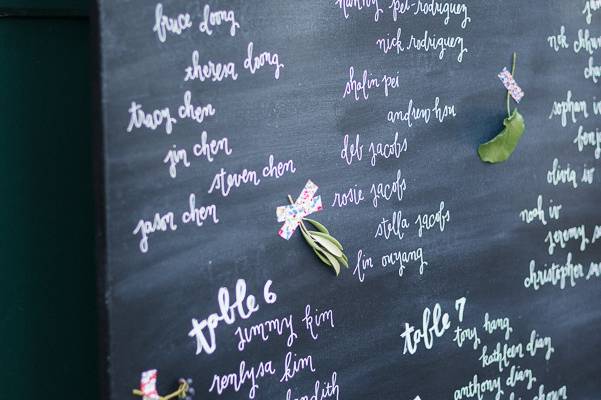 bruce doong
theresa dong
tracy chen
jin chen
steven chen
jason chen
table 6
jimmy kim
renlysa kim
pei-rodriguez
nick rodriguez
shalin pei
andrew hsu
deb jacobs
rosie jacobs
stella jacobs
lin ouyang
table 7
tony hang
kathleen dian
anthony dian
nick
olivia w
noah w
jeremy
christopher